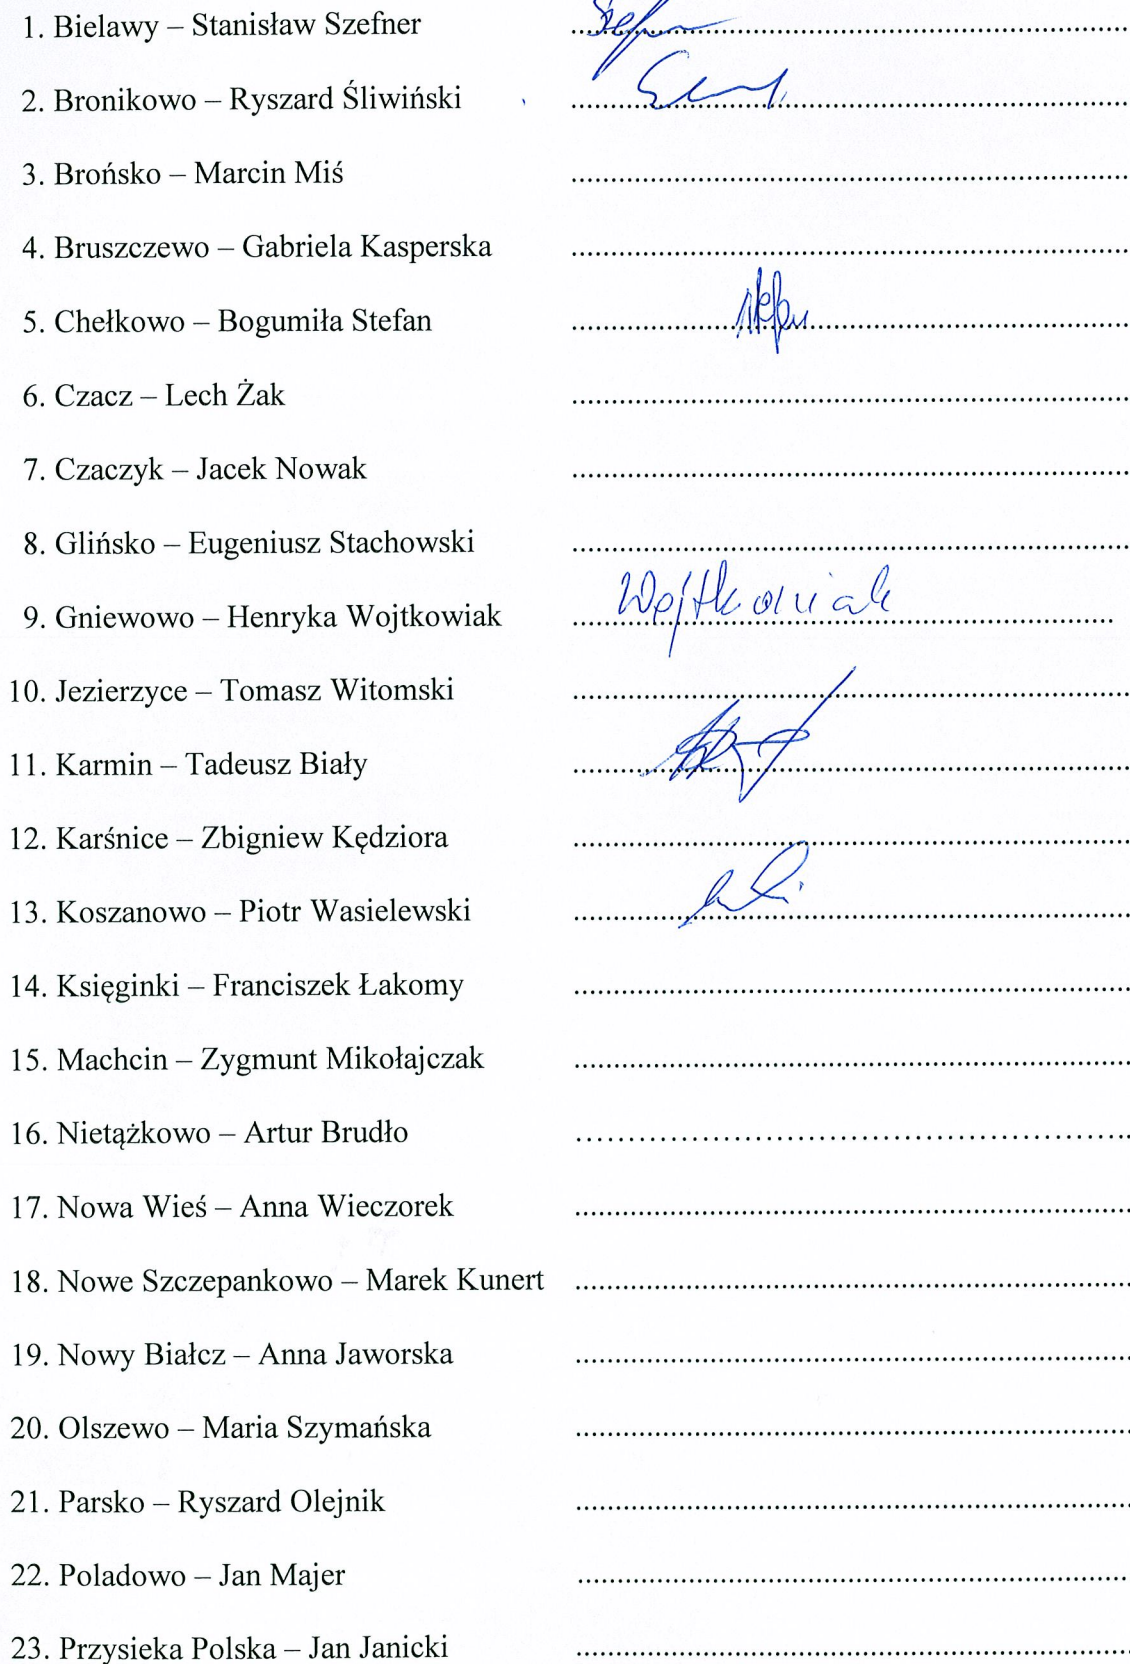 1. Bielawy – Stanisław Szefner ....................
2. Bronikowo – Ryszard Śliwiński ....................
3. Brońsko – Marcin Miś ....................
4. Bruszczewo – Gabriela Kasperska ....................
5. Chełkowo – Bogumiła Stefan ....................
6. Czacz – Lech Żak ....................
7. Czaczyk – Jacek Nowak ....................
8. Glińsko – Eugeniusz Stachowski ....................
9. Gniewowo – Henryka Wojtkowiak .................... Wojtkowiak
10. Jezierzyce – Tomasz Witomski ....................
11. Karmin – Tadeusz Biały ....................
12. Karśnice – Zbigniew Kędziora ....................
13. Koszanowo – Piotr Wasielewski ....................
14. Księginki – Franciszek Łakomy ....................
15. Machcin – Zygmunt Mikołajczak ....................
16. Nietążkowo – Artur Brudło ....................
17. Nowa Wieś – Anna Wieczorek ....................
18. Nowe Szczepankowo – Marek Kunert ....................
19. Nowy Białcz – Anna Jaworska ....................
20. Olszewo – Maria Szymańska ....................
21. Parsko – Ryszard Olejnik ....................
22. Poladowo – Jan Majer ....................
23. Przysieka Polska – Jan Janicki ....................